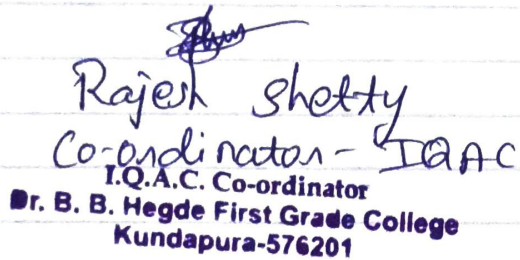 Rajesh Shetty
Co-ordinator - IQAC
I.Q.A.C. Co-ordinator
Dr. B. B. Hegde First Grade College
Kundapura-576201